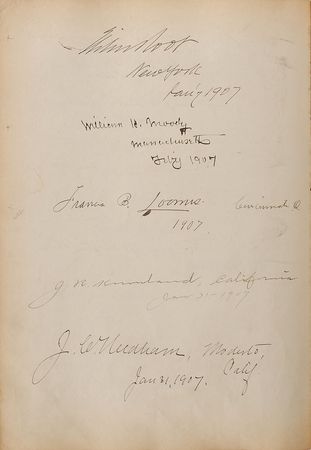 Elihu Root
New York
Jany 1907
William H. Moody
Massachusetts
Feby 1907
Francis B. Loomis. Cincinnati O.
1907
J. R. Knowland, California
Jan-21-1907
J. C. Needham, Modesto,
Calif
Jan 21, 1907.